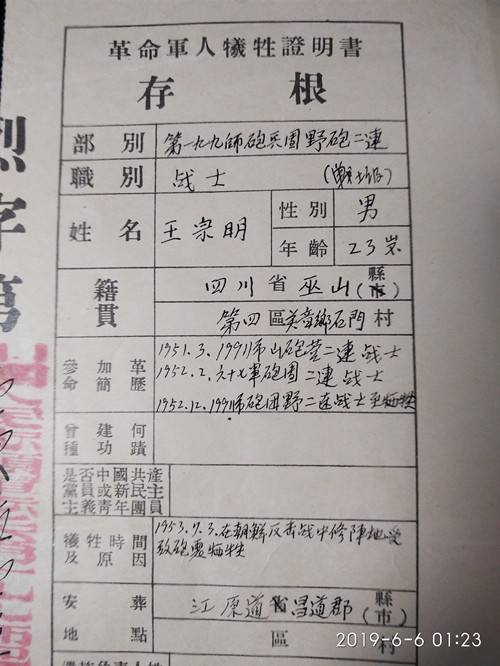 革命軍人犧牲證明書
存根
部別 第一九九師砲兵團野砲二連
職別 战士
姓名 王宗明
性別 男
年齡 23岁
籍貫 四川省巫山(縣市)
第四區 石門村
參加革命簡歷 1951.3.199师山砲营二連战士
1952.2.六十七軍砲團二連战士
1952.12.199师砲团野二连战士至牺牲
曾建何種功蹟
是否中國共產黨員或新民主主義青年團員
犧牲時間及原因 1953.7.3.在朝鮮反击战中修陣地受
致砲震牺牲
安葬地點 江原道 昌道郡(縣市)
區 村
烈字第
2019-6-6 01:23